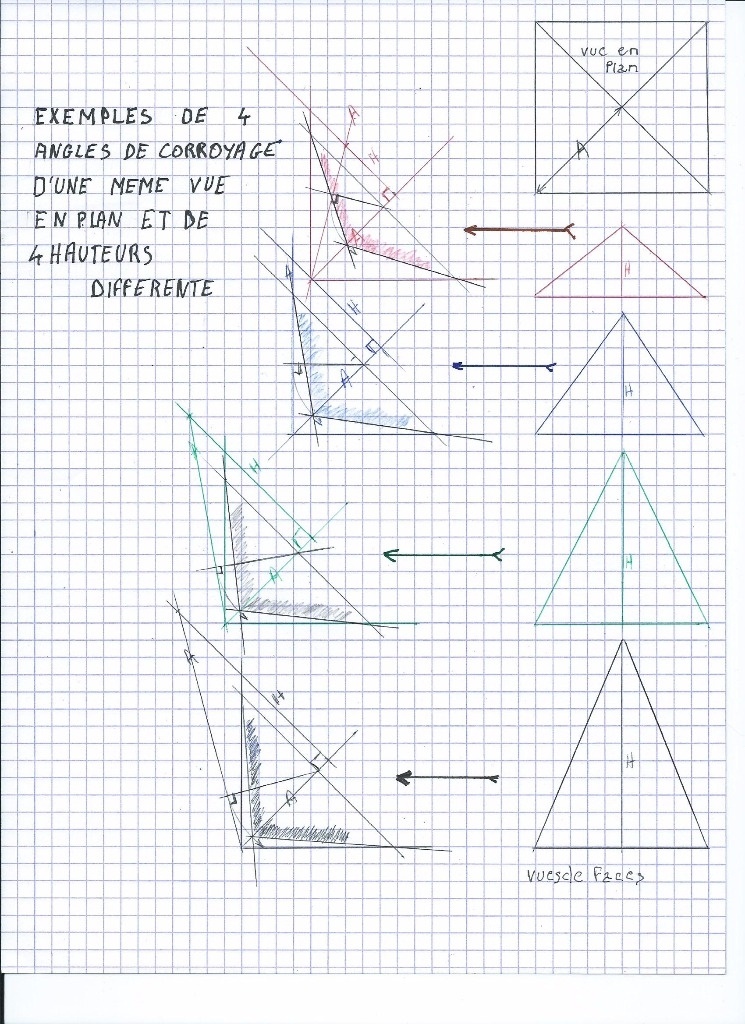 EXEMPLES DE 4
ANGLES DE CORROYAGE
D'UNE MEME VUE
EN PLAN ET DE
4 HAUTEURS
DIFFERENTE
vue en
Plan
A
A
H
H
H
A
H
H
A
H
A
H
A
H
A
vues de Faces